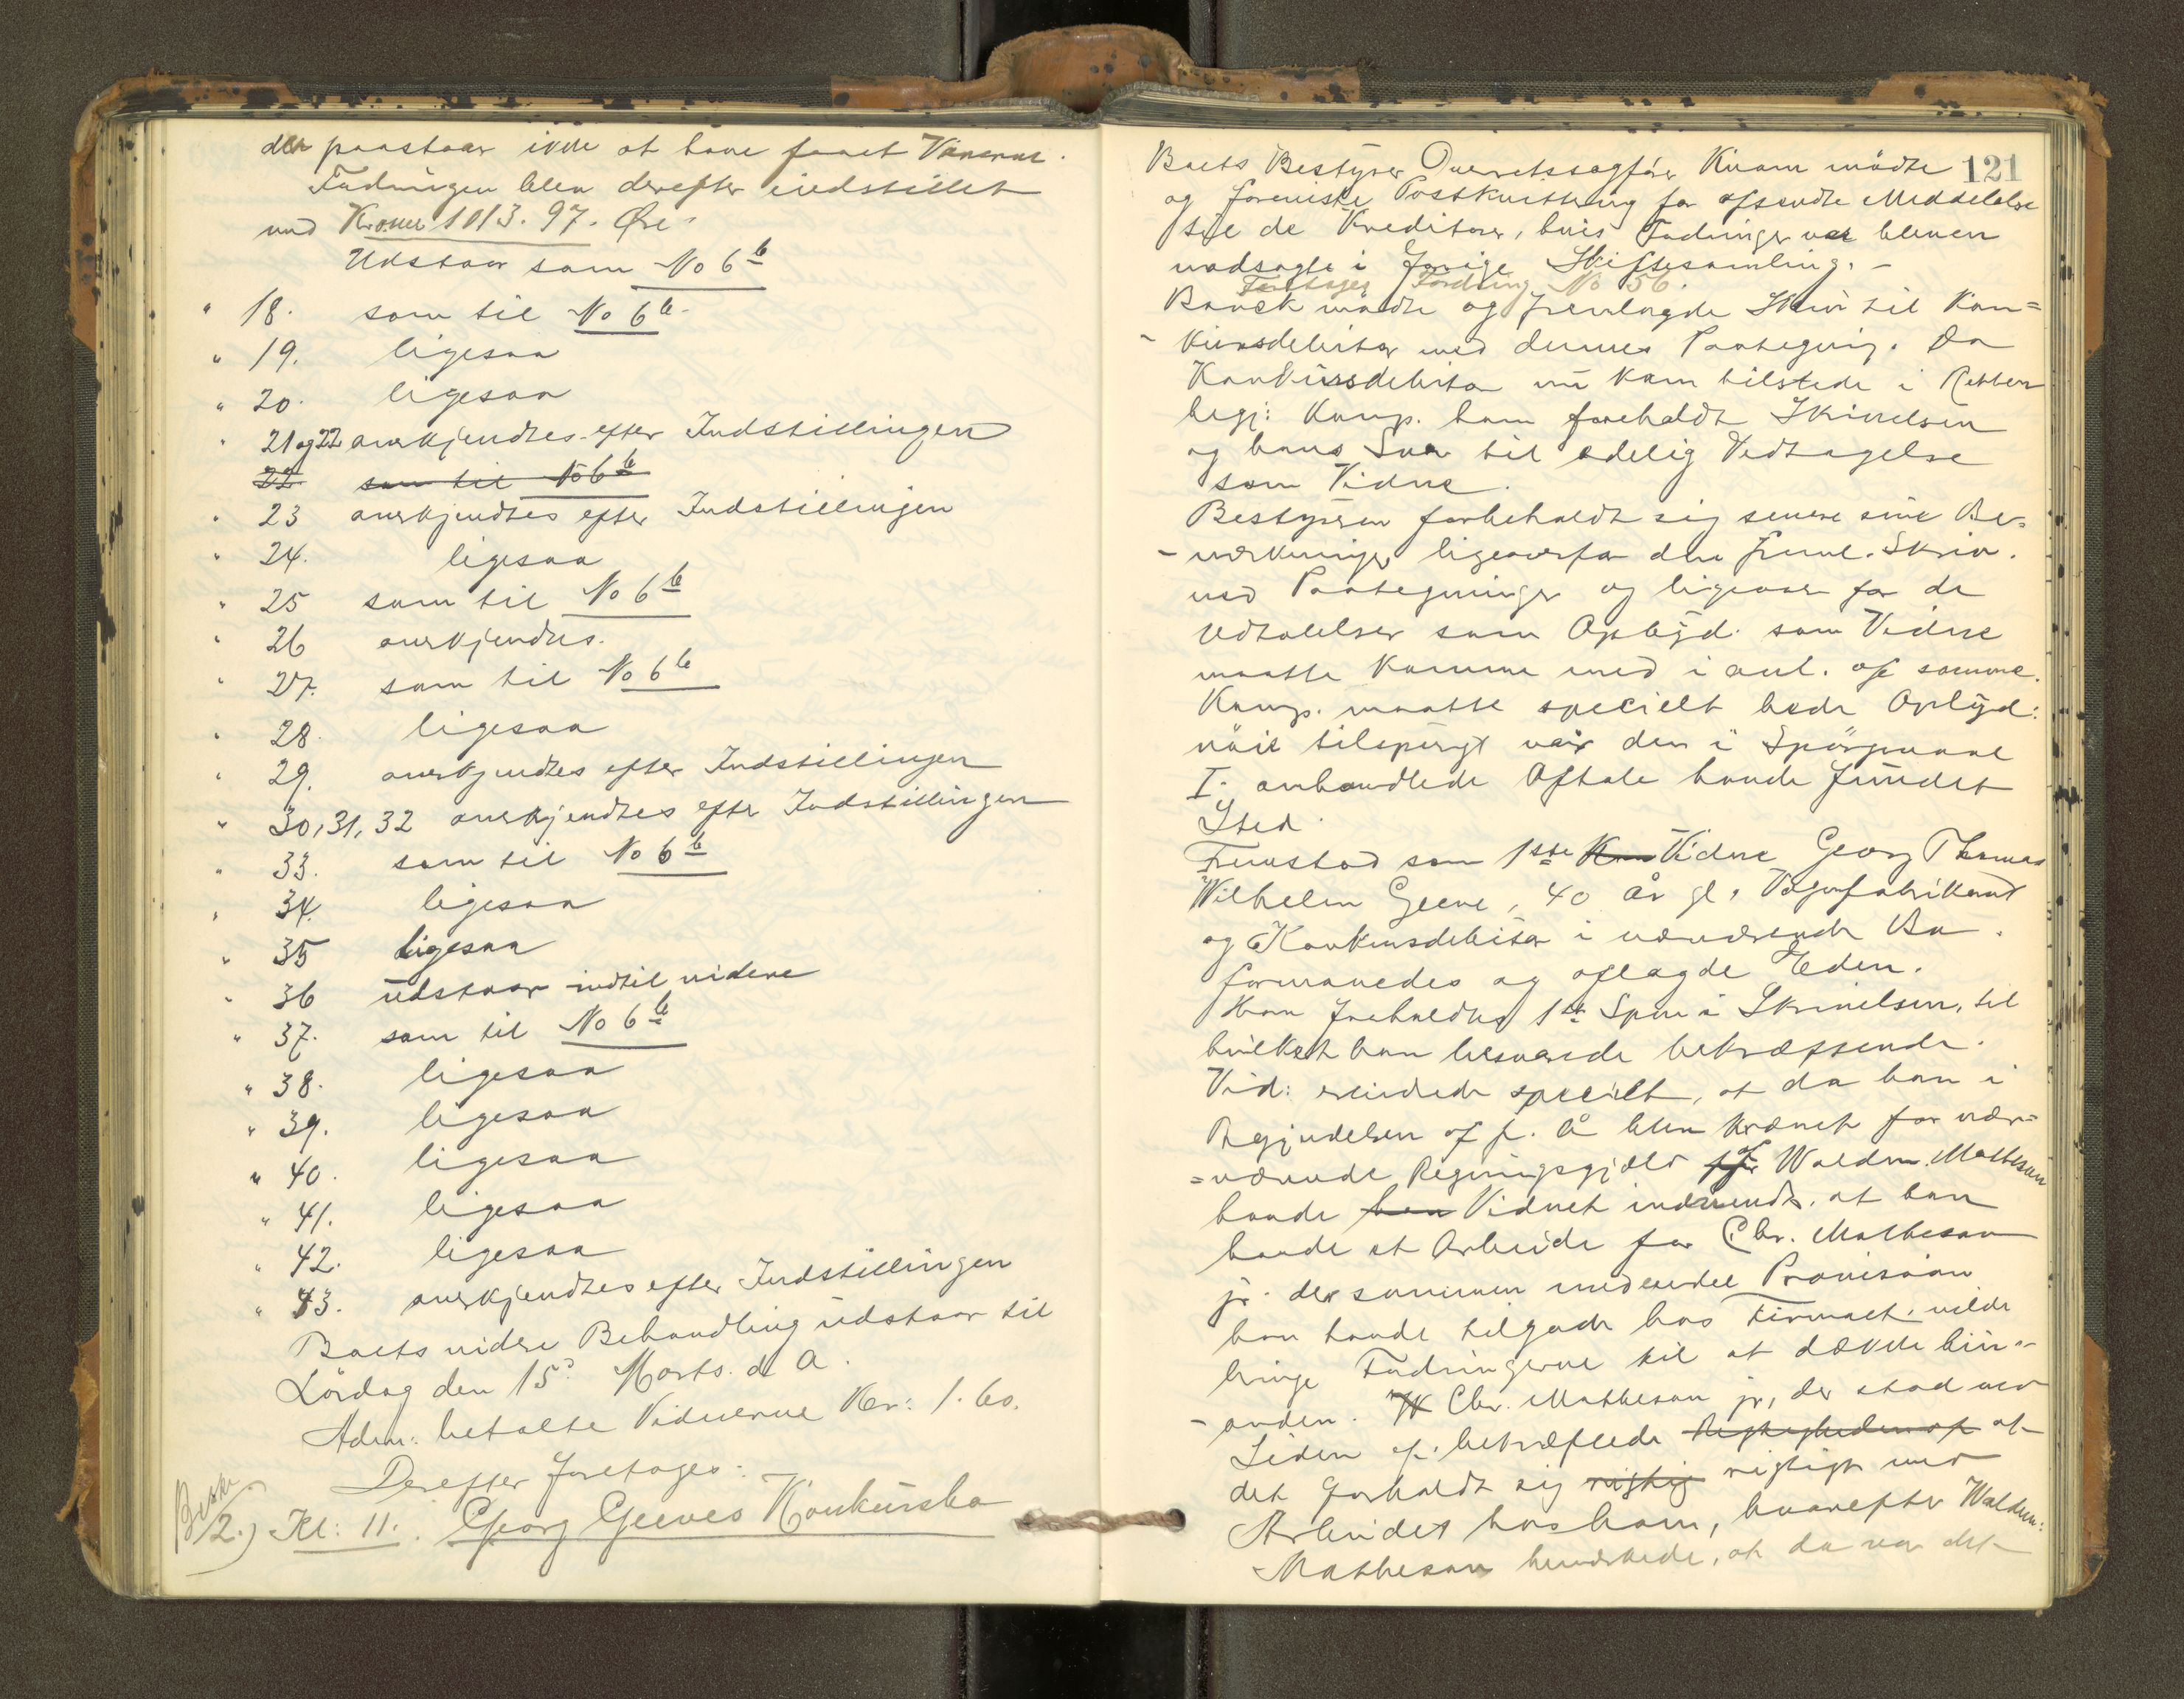 der paastaar ikke at have faaet Varerne.
Fordringen blev derefter indstillet
med Kroner 1013.97. Øre.
Udstaar som No 6b
" 18. som til No 6b
" 19. ligesaa
" 20. ligesaa
" 21 og 22 anerkjendtes efter Indstillingen
22 som til No 6b
" 23 anerkjendtes efter Indstillingen
" 24. ligesaa
" 25 som til No 6b
" 26 anerkjendtes.
" 27. som til No 6b
" 28. ligesaa
" 29. anerkjendtes efter Indstillingen
" 30, 31, 32 anerkjendtes efter Indstillingen
" 33. som til No 6b
" 34. ligesaa
" 35 ligesaa
" 36 udstaar indtil videre
" 37. som til No 6b
" 38. ligesaa
" 39. ligesaa
" 40. ligesaa
" 41. ligesaa
" 42. ligesaa
" 43. anerkjendtes efter Indstillingen
Boets videre Behandling udstaar til
Lördag den 15d Marts. d. A.
Adm: betalte Vidnerne Kr: 1.60.
Derefter foretages:
Beskr
2.) Kl: 11. Georg Geeves Konkursbo
121
Boets Bestyrer Overretssagfører Kiram mödte
og foreviste Postkvittering for afsendte Meddelelse
til de Kreditorer, hvis Fordringer var bleven
modsagte i forrige Skiftesamling. -
Foretages Fordring No 56.
Barck mödte og fremlagde Skriv til Kon=
- kursdebitor med dennes Paategning. Da
Konkursdebitor nu kom tilstede i Retten
begj: Komp. ham foreholdt Skrivelsen
og hans Svar til edelig Vedtagelse
som Vidne.
Bestyreren forbeholdt sig senere sine Be=
- mærkninger ligeoverfor den freml. Skriv.
med Paategninger og ligeover for de
Udtalelser som Opbyd: som Vidne
maatte komme med i anl. af samme.
Komp. maatte specielt bede Opbyd:
nöie tilspurgt naar den i Spörgsmaal
I. omhandlede Aftale havde fundet
Sted.
Fremstod som 1ste Vidne Georg Thomas
Wilhelm Geeve, 40 år gl, Vognfabrikant
og Konkursdebitor i nærværende Bo.
formanedes og aflagde Eden.
Han foreholdtes 1st Spm i Skrivelsen, til
hvilket han besvarede bekræftende.
Vid: erindrede specielt, at da han i
Begyndelsen af f. Å blev krævet for nær=
=værende Regningsgjæld af Waldm. Mathesen
havde han Vidnet indvendt, at han
havde et Arbeide for Chr. Mathesen
jr. der sammen med endel Provision
han havde tilgode hos Firmaet vilde
bringe Fordringerne til at dække hin-
- anden. Chr. Mathesen jr, der stod ved
Siden af, bekræftede Rigtigheden af at
det forholdt sig rigtig rigtigt med
Arbeidet hos ham, hvorefter Waldm:
Mathesen bemærkede, at da var det